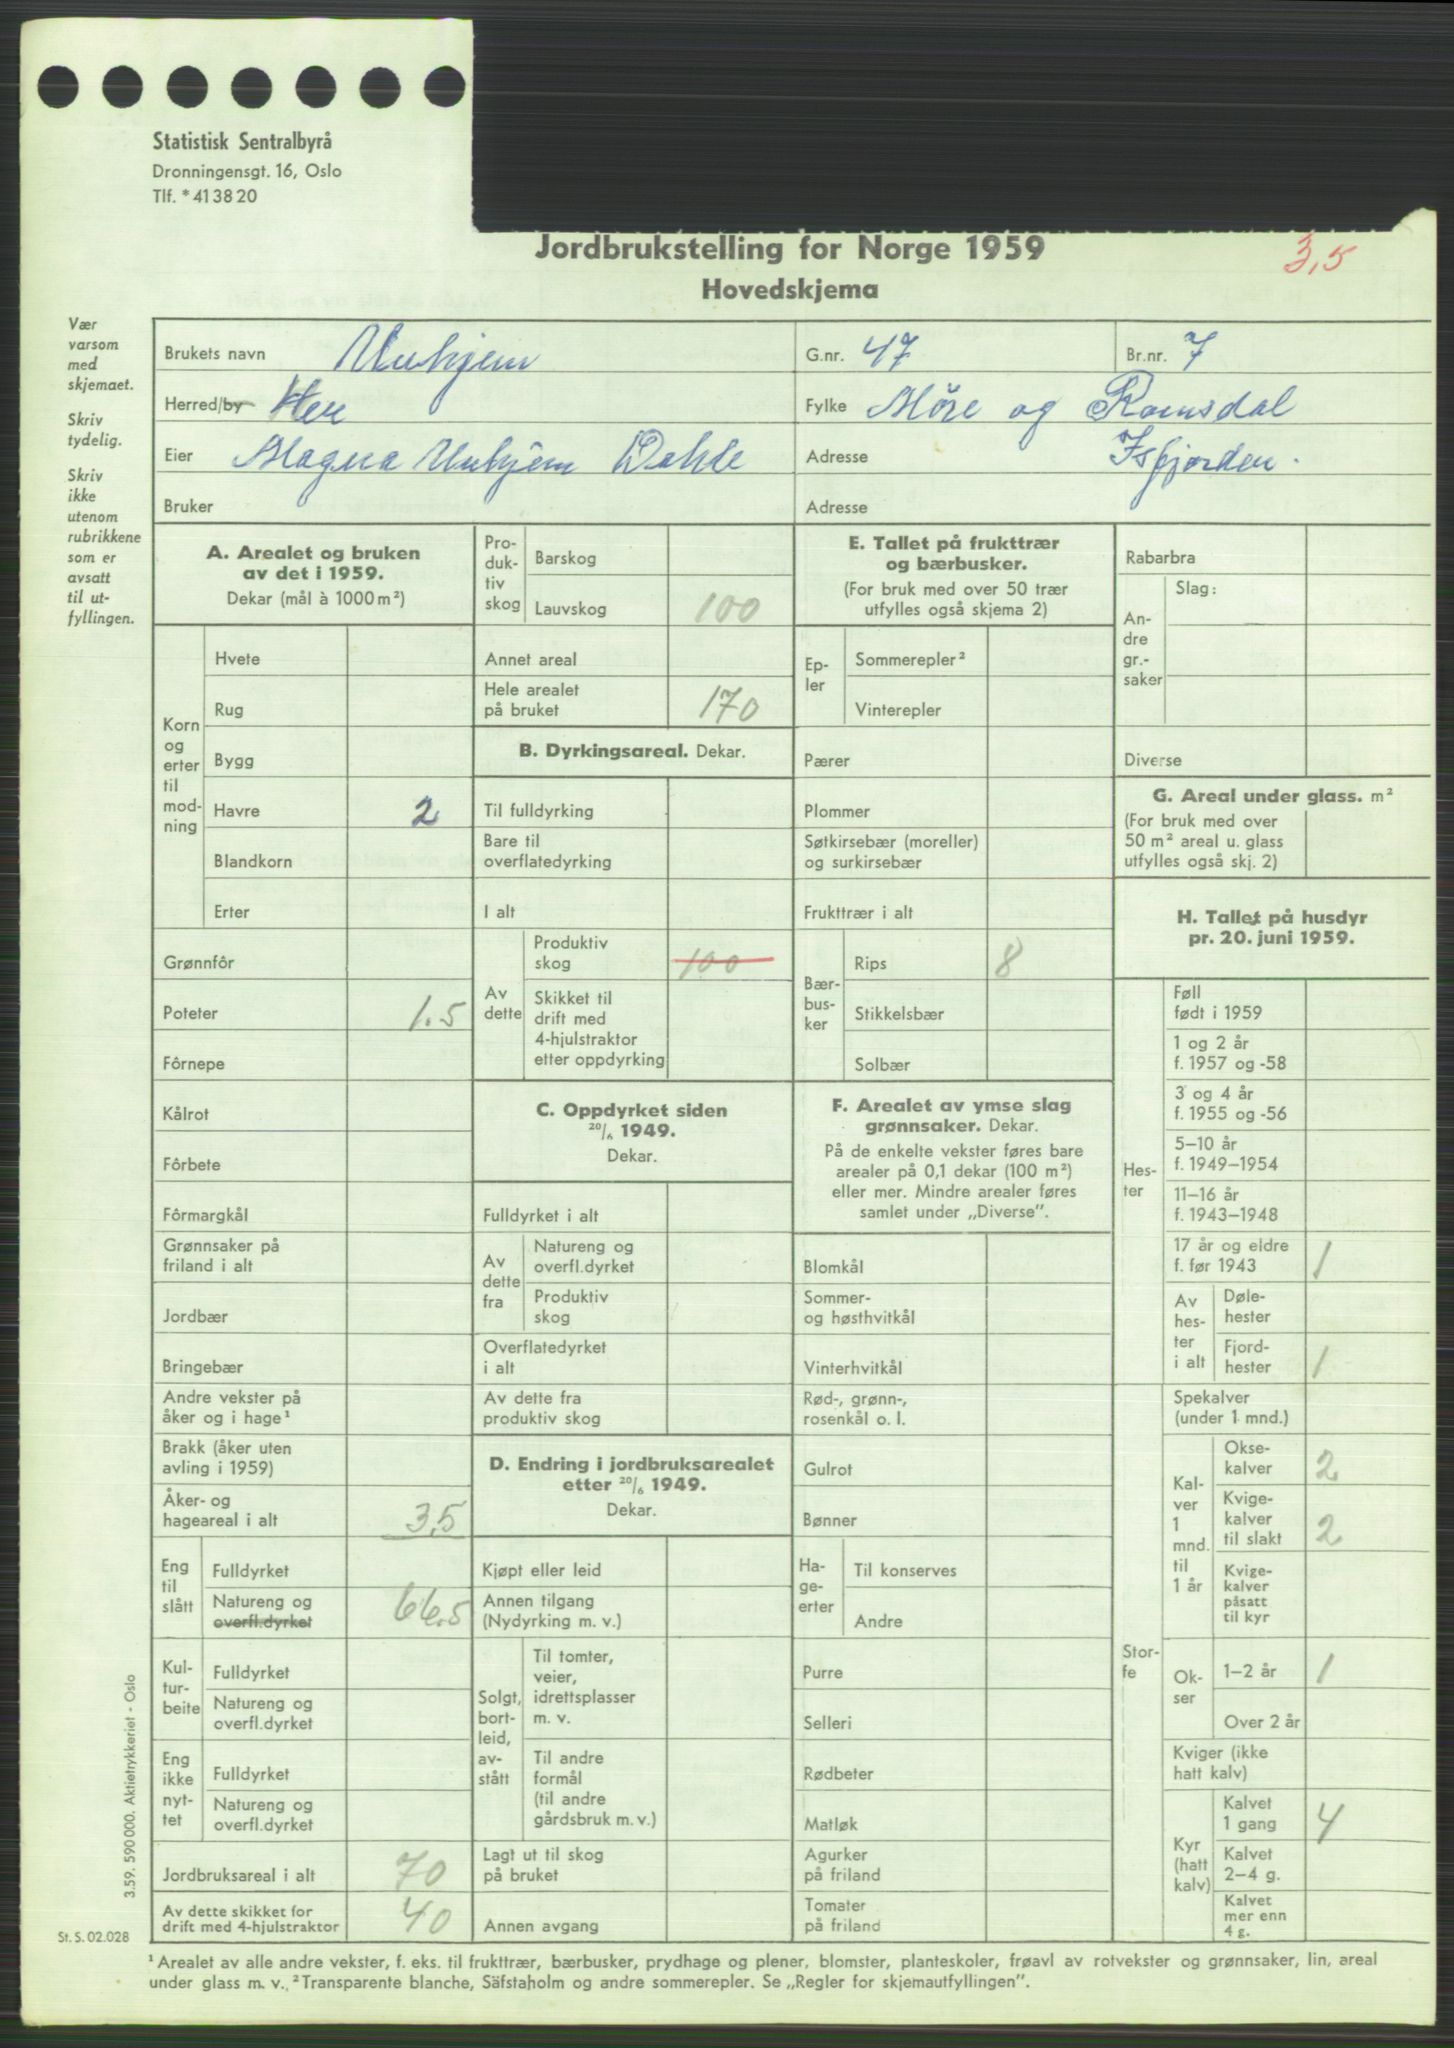 Statistisk Sentralbyrå
Dronningensgt. 16, Oslo
Tlf. * 41 38 20
Jordbrukstelling for Norge 1959
3,5
Hovedskjema
Vær
varsom
med
skjemaet.
Skriv
tydelig.
Skriv
ikke
utenom
rubrikkene
som er
avsatt
til ut-
fyllingen.
Brukets navn Unhjem G.nr. 47 Br.nr. 7
Herred/by Hen Fylke Møre og Romsdal
Eier Magna Unhjem Dahle Adresse Isfjorden.
Bruker Adresse
A. Arealet og bruken
av det i 1959.
Dekar (mål à 1000 m²)
Korn
og
erter
til
mod-
ning
Hvete
Rug
Bygg
Havre 2
Blandkorn
Erter
Grønnfôr
Poteter 1.5
Fôrnepe
Kålrot
Fôrbete
Fôrmargkål
Grønnsaker på
friland i alt
Jordbær
Bringebær
Andre vekster på
åker og i hage¹
Brakk (åker uten
avling i 1959)
Åker- og
hageareal i alt 3,5
Eng
til
slått
Fulldyrket
Natureng og
overfl.dyrket 66.5
Kul-
tur-
beite
Fulldyrket
Natureng og
overfl.dyrket
Eng
ikke
nyt-
tet
Fulldyrket
Natureng og
overfl.dyrket
Jordbruksareal i alt 70
Av dette skikket for
drift med 4-hjulstraktor 40
Pro-
duk-
tiv
skog
Barskog
Lauvskog 100
Annet areal
Hele arealet
på bruket 170
B. Dyrkingsareal. Dekar.
Til fulldyrking
Bare til
overflatedyrking
I alt
Av
dette
Produktiv
skog 100
Skikket til
drift med
4-hjulstraktor
etter oppdyrking
C. Oppdyrket siden
20/6 1949.
Dekar.
Fulldyrket i alt
Av
dette
fra
Natureng og
overfl.dyrket
Produktiv
skog
Overflatedyrket
i alt
Av dette fra
produktiv skog
D. Endring i jordbruksarealet
etter 20/6 1949.
Dekar.
Kjøpt eller leid
Annen tilgang
(Nydyrking m. v.)
Solgt,
bort-
leid,
av-
stått
Til tomter,
veier,
idrettsplasser
m. v.
Til andre
formål
(til andre
gårdsbruk m. v.)
Lagt ut til skog
på bruket
Annen avgang
E. Tallet på frukttrær
og bærbusker.
(For bruk med over 50 trær
utfylles også skjema 2)
Ep-
ler
Sommerepler²
Vinterepler
Pærer
Plommer
Søtkirsebær (moreller)
og surkirsebær
Frukttrær i alt
Bær-
bus-
ker
Rips 8
Stikkelsbær
Solbær
F. Arealet av ymse slag
grønnsaker. Dekar.
På de enkelte vekster føres bare
arealer på 0,1 dekar (100 m²)
eller mer. Mindre arealer føres
samlet under „Diverse”.
Blomkål
Sommer-
og høsthvitkål
Vinterhvitkål
Rød-, grønn-,
rosenkål o. l.
Gulrot
Bønner
Ha-
ge-
erter
Til konserves
Andre
Purre
Selleri
Rødbeter
Matløk
Agurker
på friland
Tomater
på friland
Rabarbra
An-
dre
gr.-
saker
Slag:
Diverse
G. Areal under glass. m²
(For bruk med over
50 m² areal u. glass
utfylles også skj. 2)
H. Tallet på husdyr
pr. 20. juni 1959.
Hes-
ter
Føll
født i 1959
1 og 2 år
f. 1957 og -58
3 og 4 år
f. 1955 og -56
5–10 år
f. 1949–1954
11–16 år
f. 1943–1948
17 år og eldre
f. før 1943 1
Av
hes-
ter
i alt
Døle-
hester
Fjord-
hester 1
Stor-
fe
Spekalver
(under 1 mnd.)
Kal-
ver
1
mnd.
til
1 år
Okse-
kalver 2
Kvige-
kalver
til slakt 2
Kvige-
kalver
påsatt
til kyr
Ok-
ser
1–2 år 1
Over 2 år
Kviger (ikke
hatt kalv)
Kyr
(hatt
kalv)
Kalvet
1 gang 4
Kalvet
2–4 g.
Kalvet
mer enn
4 g.
3.59. 590 000. Aktietrykkeriet - Oslo
St. S. 02.028
¹ Arealet av alle andre vekster, f. eks. til frukttrær, bærbusker, prydhage og plener, blomster, planteskoler, frøavl av rotvekster og grønnsaker, lin, areal
under glass m. v. ² Transparente blanche, Säfstaholm og andre sommerepler. Se „Regler for skjemautfyllingen”.